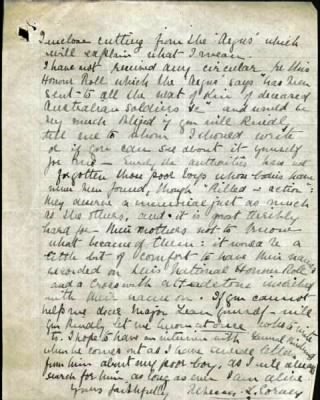 I enclose cutting from the "Argus" which
will explain what I mean.
I have not received any circular re this
Honour Roll which the "Argus" says "has been
sent to all the next of kin of deceased
Australian soldiers &c" and would be
very much obliged if you will kindly
tell me to whom I should write
or if you can see about it yourself
for me — Surely the authorities have not
forgotten those poor boys whose bodies have
never been found, though "Killed in action";
they deserve a memorial just as much
as the others, and it is most terribly
hard for their mothers not to know
what became of them: it would be a
little bit of comfort to have their names
recorded on this National Honour Roll
and a Cross with a headstone inscribed
with their name on. If you cannot
help me dear Major Lean yourself — will
you kindly let me know at once who to write
to. I hope to have an interview with
when he comes out as I have letter
from him about my poor boy, as I will always
search for him, as long as ever I am alive
Yours faithfully,